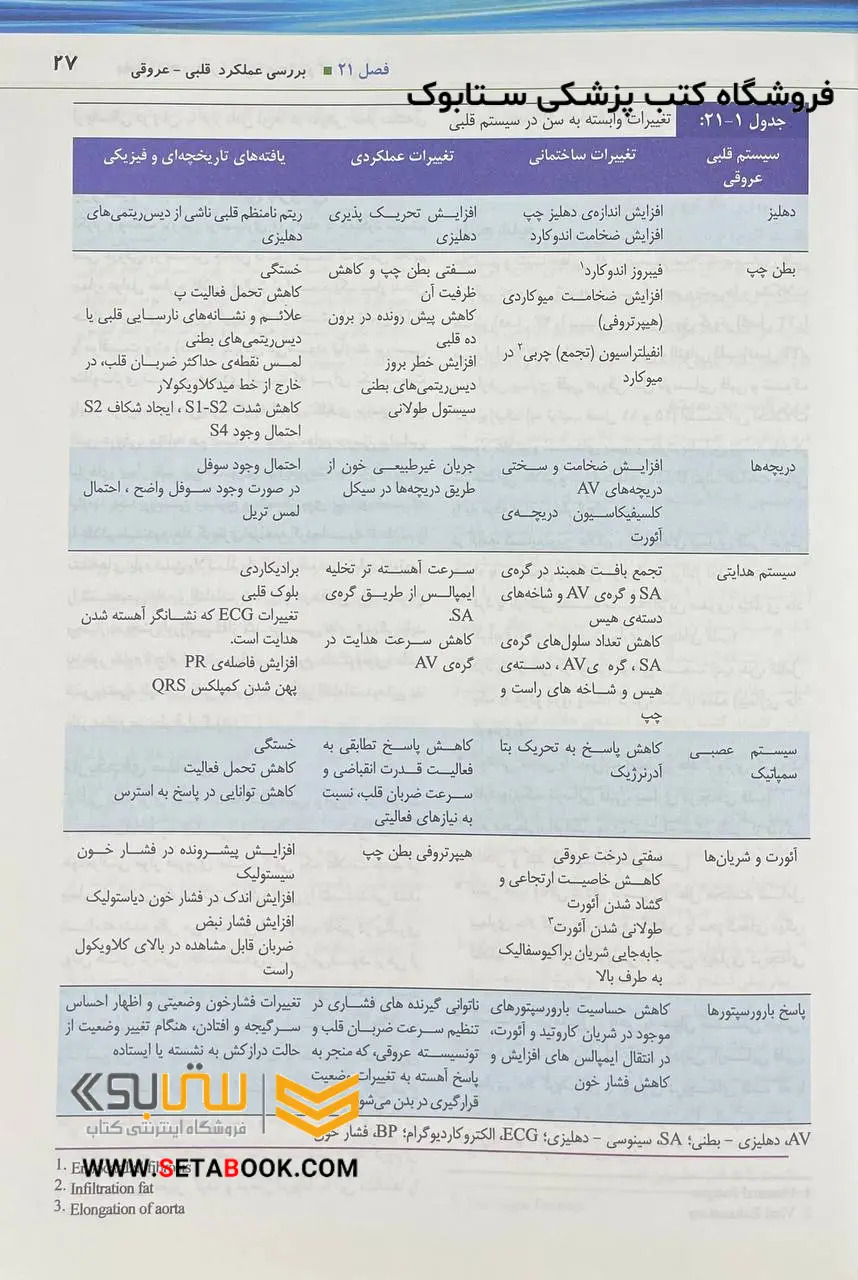 ۲۷
فصل ۲۱ ■ بررسی عملکرد قلبی - عروقی
فروشگاه کتب پزشکی ستابوک
جدول ۱-۲۱: تغییرات وابسته به سن در سیستم قلبی
سیستم قلبی عروقی
تغییرات ساختمانی
تغییرات عملکردی
یافته‌های تاریخچه‌ای و فیزیکی
دهلیز
افزایش اندازه‌ی دهلیز چپ
افزایش ضخامت اندوکارد
افزایش تحریک پذیری
دهلیزی
ریتم نامنظم قلبی ناشی از دیس‌ریتمی‌های
دهلیزی
بطن چپ
فیبروز اندوکارد۱
افزایش ضخامت میوکاردی
(هیپرتروفی)
انفیلتراسیون (تجمع) چربی۲ در
میوکارد
سفتی بطن چپ و کاهش
ظرفیت آن
کاهش پیش رونده در برون
ده قلبی
افزایش خطر بروز
دیس‌ریتمی‌های بطنی
سیستول طولانی
خستگی
کاهش تحمل فعالیت پ
علائم و نشانه‌های نارسایی قلبی یا
دیس‌ریتمی‌های بطنی
لمس نقطه‌ی حداکثر ضربان قلب، در
خارج از خط میدکلاویکولار
کاهش شدت S1-S2 ، ایجاد شکاف S2
احتمال وجود S4
دریچه‌ها
افزایش ضخامت و سختی
دریچه‌های AV
کلسیفیکاسیون دریچه‌ی
آئورت
جریان غیرطبیعی خون از
طریق دریچه‌ها در سیکل
احتمال وجود سوفل
در صورت وجود سوفل واضح ، احتمال
لمس تریل
سیستم هدایتی
تجمع بافت همبند در گره‌ی
SA و گره‌ی AV و شاخه‌های
دسته‌ی هیس
کاهش تعداد سلول‌های گره‌ی
SA ، گره یAV ، دسته‌ی
هیس و شاخه های راست و
چپ
سرعت آهسته تر تخلیه
ایمپالس از طریق گره‌ی
SA.
کاهش سرعت هدایت در
گره‌ی AV
برادیکاردی
بلوک قلبی
تغییرات ECG که نشانگر آهسته شدن
هدایت است.
افزایش فاصله‌ی PR
پهن شدن کمپلکس QRS
سیستم عصبی
سمپاتیک
کاهش پاسخ به تحریک بتا
آدرنرژیک
کاهش پاسخ تطابقی به
فعالیت قدرت انقباضی و
سرعت ضربان قلب، نسبت
به نیازهای فعالیتی
خستگی
کاهش تحمل فعالیت
کاهش توانایی در پاسخ به استرس
آئورت و شریان‌ها
سفتی درخت عروقی
کاهش خاصیت ارتجاعی و
گشاد شدن آئورت
طولانی شدن آئورت۳
جابه‌جایی شریان براکیوسفالیک
به طرف بالا
هیپرتروفی بطن چپ
افزایش پیشرونده در فشار خون
سیستولیک
افزایش اندک در فشار خون دیاستولیک
افزایش فشار نبض
ضربان قابل مشاهده در بالای کلاویکول
راست
پاسخ بارورسپتورها
کاهش حساسیت بارورسپتورهای
موجود در شریان کاروتید و آئورت،
در انتقال ایمپالس های افزایش و
کاهش فشار خون
ناتوانی گیرنده های فشاری در
تنظیم سرعت ضربان قلب و
تونسیسته عروقی، که منجر به
پاسخ آهسته به تغییرات وضعیت
قرارگیری در بدن می‌شو
تغییرات فشارخون وضعیتی و اظهار احساس
سرگیجه و افتادن، هنگام تغییر وضعیت از
حالت درازکش به نشسته یا ایستاده
ستابوک
فروشگاه اینترنتی کتاب
AV، دهلیزی – بطنی؛ SA، سینوسی – دهلیزی؛ ECG، الکتروکاردیوگرام؛ BP، فشار خون
1.
WWW.SETABOOK.COM
2. Infiltration fat
3. Elongation of aorta